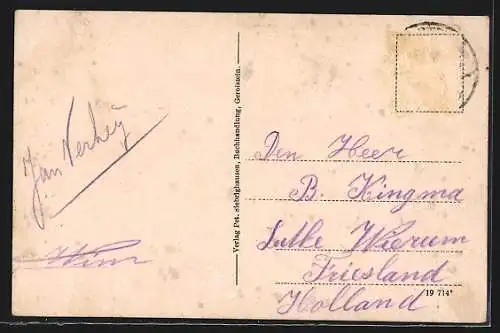 Jan Verheij
Wim
Verlag Pet. Siebrighausen, Buchhandlung, Gerolstein.
Den Heer
B. Kingma
Lutke Wierum
Friesland
Holland.
19 714*